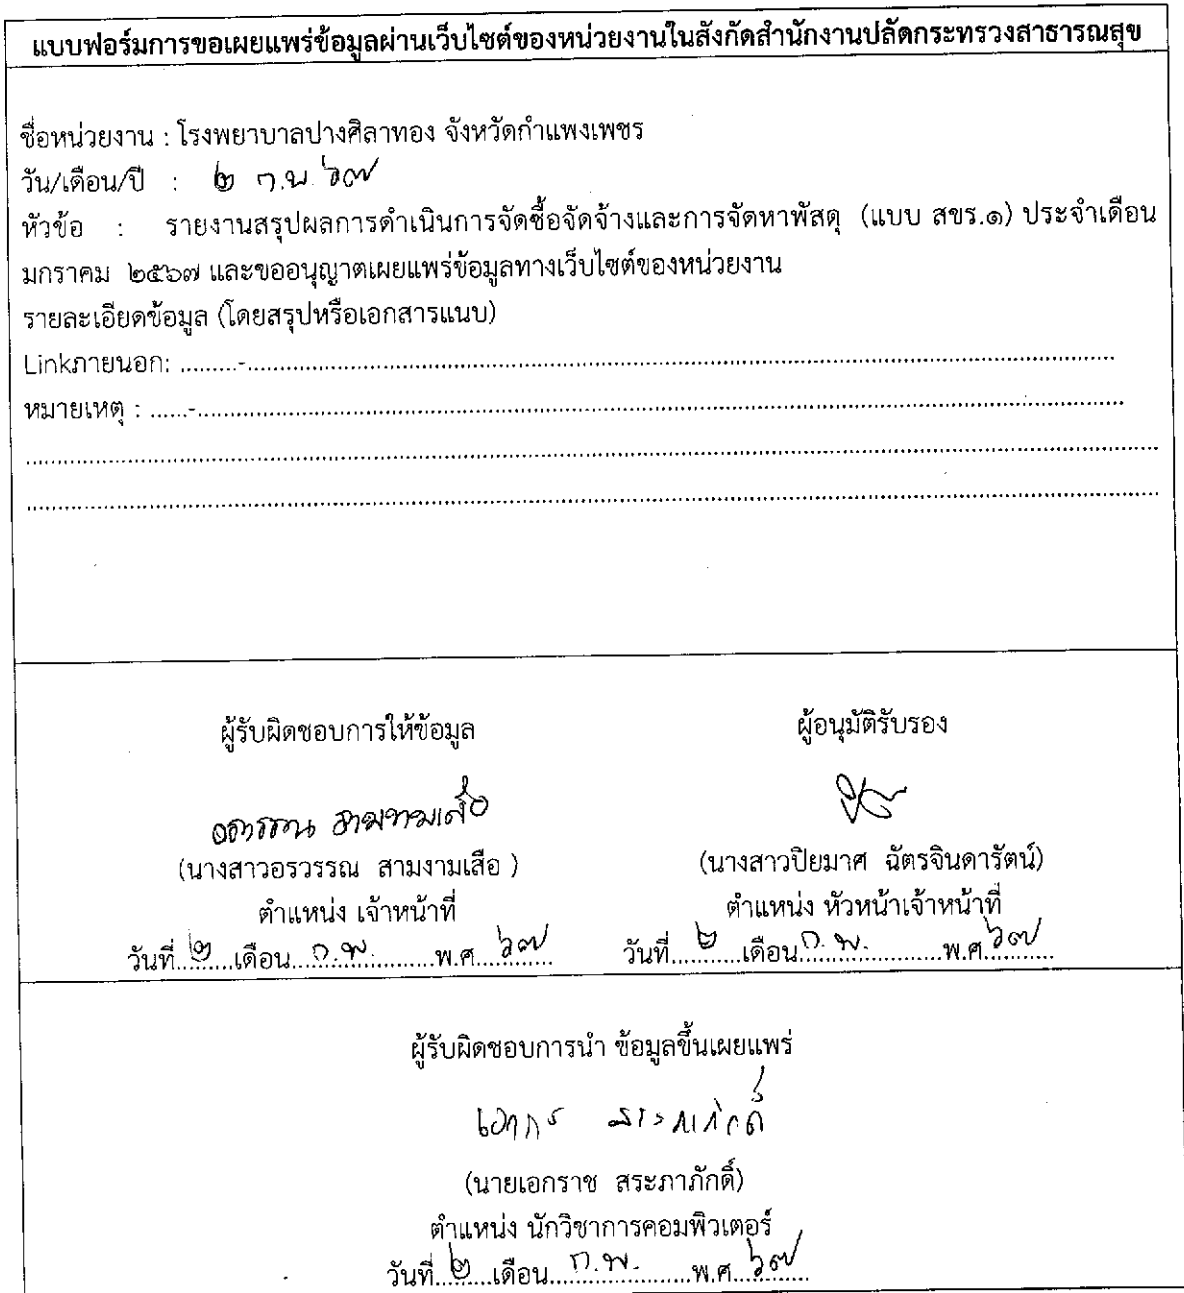 แบบฟอร์มการขอเผยแพร่ข้อมูลผ่านเว็บไซต์ของหน่วยงานในสังกัดสำนักงานปลัดกระทรวงสาธารณสุข
ชื่อหน่วยงาน : โรงพยาบาลปางศิลาทอง จังหวัดกำแพงเพชร
วัน/เดือน/ปี : ๒ ก.พ. ๖๗
หัวข้อ : รายงานสรุปผลการดำเนินการจัดซื้อจัดจ้างและการจัดหาพัสดุ (แบบ สขร.๑) ประจำเดือน
มกราคม ๒๕๖๗ และขออนุญาตเผยแพร่ข้อมูลทางเว็บไซต์ของหน่วยงาน
รายละเอียดข้อมูล (โดยสรุปหรือเอกสารแนบ)
Linkภายนอก: .........-.........
หมายเหตุ : ......-.........
ผู้รับผิดชอบการให้ข้อมูล ผู้อนุมัติรับรอง
อรวรรณ สามงามเสือ
(นางสาวอรวรรณ สามงามเสือ ) (นางสาวปิยมาศ ฉัตรจินดารัตน์)
ตำแหน่ง เจ้าหน้าที่ ตำแหน่ง หัวหน้าเจ้าหน้าที่
วันที่ ๒ เดือน ก.พ. พ.ศ. ๖๗ วันที่ ๒ เดือน ก.พ. พ.ศ. ๖๗
ผู้รับผิดชอบการนำ ข้อมูลขึ้นเผยแพร่
(นายเอกราช สระภาภักดิ์)
ตำแหน่ง นักวิชาการคอมพิวเตอร์
วันที่ ๒ เดือน ก.พ. พ.ศ. ๖๗